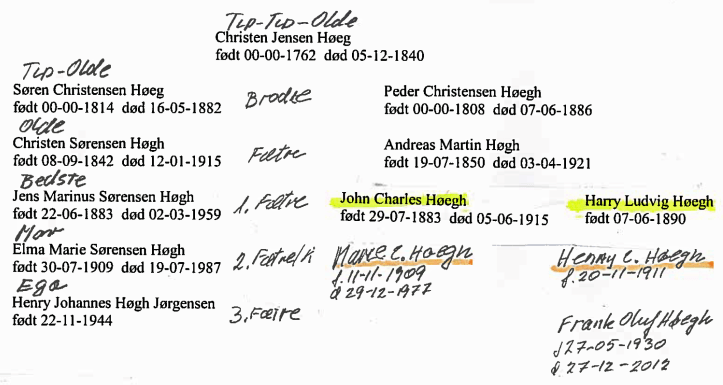 Tip-Tip-Olde
Christen Jensen Høeg
født 00-00-1762 død 05-12-1840
Tip-Olde
Søren Christensen Høeg
født 00-00-1814 død 16-05-1882
Brødre
Peder Christensen Høegh
født 00-00-1808 død 07-06-1886
Olde
Christen Sørensen Høgh
født 08-09-1842 død 12-01-1915
Fætre
Andreas Martin Høgh
født 19-07-1850 død 03-04-1921
Bedste
Jens Marinus Sørensen Høgh
født 22-06-1883 død 02-03-1959
1. Fætre
John Charles Høegh
født 29-07-1883 død 05-06-1915
Harry Ludvig Høegh
født 07-06-1890
Mor
Elma Marie Sørensen Høgh
født 30-07-1909 død 19-07-1987
2. Fætre/K
Marie C. Høegh
f. 11-11-1909
d 29-12-1977
Henny C. Høegh
f. 20-11-1911
Ego
Henry Johannes Høgh Jørgensen
født 22-11-1944
3. Fætre
Frank Oluf Høegh
f 27-05-1930
d 27-12-2012